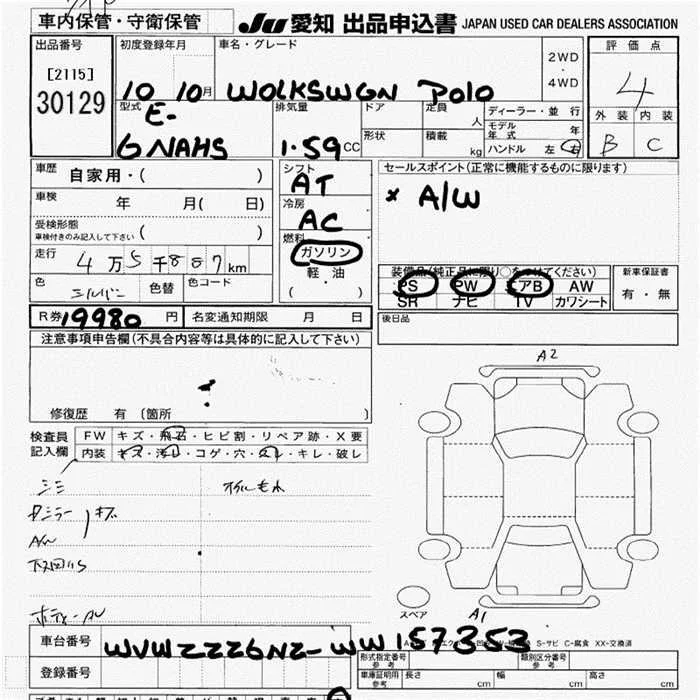 車内保管・守衛保管
JU 愛知 出品申込書 JAPAN USED CAR DEALERS ASSOCIATION
出品番号
[2115]
30129
初度登録年月
車名・グレード
2WD
4WD
評価点
4
10 10月 WOLKSWGN Polo
外装 内装
B C
型式
E-
GNAHS
排気量
1.59 CC
ドア
定員
人
形状
積載
kg
ディーラー・並行
モデル年式 年
ハンドル 左 右
車歴 自家用・( )
車検 年 月( 日)
受検形態
車検付きのみ記入して下さい ( )
走行 4万5千887km
色 シルバー 色替 色コード
シフト
AT
冷房
AC
燃料
ガソリン
軽・油
( )
セールスポイント(正常に機能するものに限ります)
× A/W
装備品(純正品に限り○をつけてください)
PS PW エアB AW
SR ナビ TV カワシート
新車保証書
有・無
R券 19980 円 名変通知期限 月 日
後日品
注意事項申告欄(不具合内容等は具体的に記入して下さい)
修復歴 有 (箇所 )
検査員
記入欄
FW キズ・飛石・ヒビ割・リペア跡・X要
内装 キズ・汚れ・コゲ・穴・スレ・キレ・破し
A2
A/W
スペア
A1
S-サビ C-腐食 XX-交換済
車台番号 WVWZZZ6NZ-WW157353
登録番号
形式指定番号 参考
類別区分番号 参考
車庫証明用 参考 長さ cm 幅 cm 高さ cm